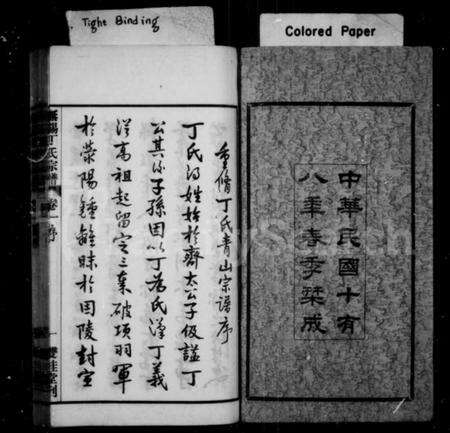 Tight Binding
Colored Paper
中華民國十有
八年春季栞成
重修丁氏青山宗譜序
丁氏得姓始於齊太公子伋諡丁
公其後子孫因以丁為氏漢丁義
從高祖起留定三秦破項羽軍
於滎陽鍾離眛於固陵封宣
丁氏宗譜 卷一 序
一 雙桂堂刊